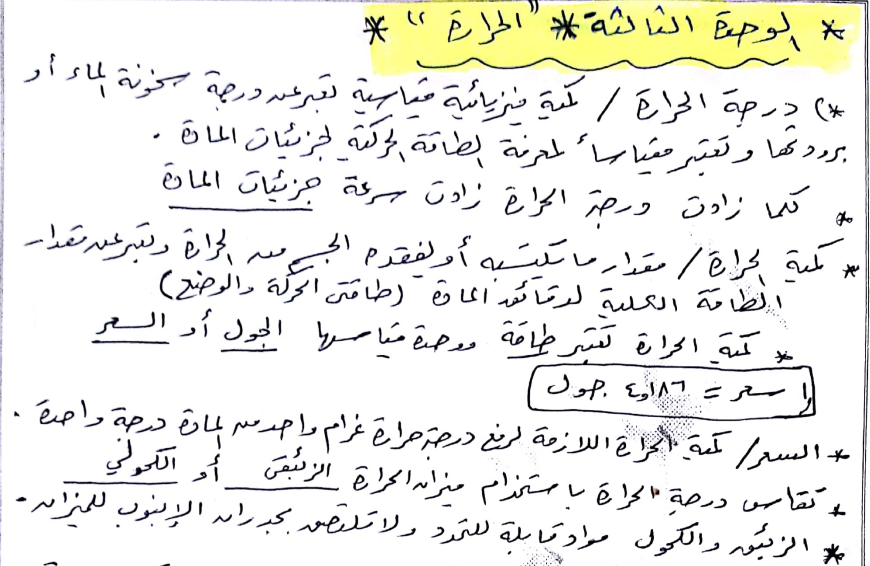 * الوحدة الثالثة * "الحرارة" *
*) درجة الحرارة / كمية فيزيائية قياسية تعبر عن درجة سخونة الماء أو
برودتها وتعتبر مقياساً لمعرفة الطاقة الحركية لجزئيات المادة .
* كلما زادت درجة الحرارة زادت سرعة جزئيات المادة
* كمية الحرارة / مقدار ما يكتسبه أو يفقده الجسم من الحرارة وتعبر عن مقدار
الطاقة الكلية لدقائق المادة (طاقتي الحركة والوضع)
* كمية الحرارة تعتبر طاقة ووحدة قياسها الجول أو السعر
١ سعر = ٤,١٨٦ جول
* السعر / كمية الحرارة اللازمة لرفع درجة حرارة غرام واحد من المادة درجة واحدة .
* تقاس درجة الحرارة باستخدام ميزان الحرارة الزئبقي أو الكحولي
* الزئبق والكحول مواد قابلة للتمدد ولا تلتصق بجدران الإنبوب للميزان .